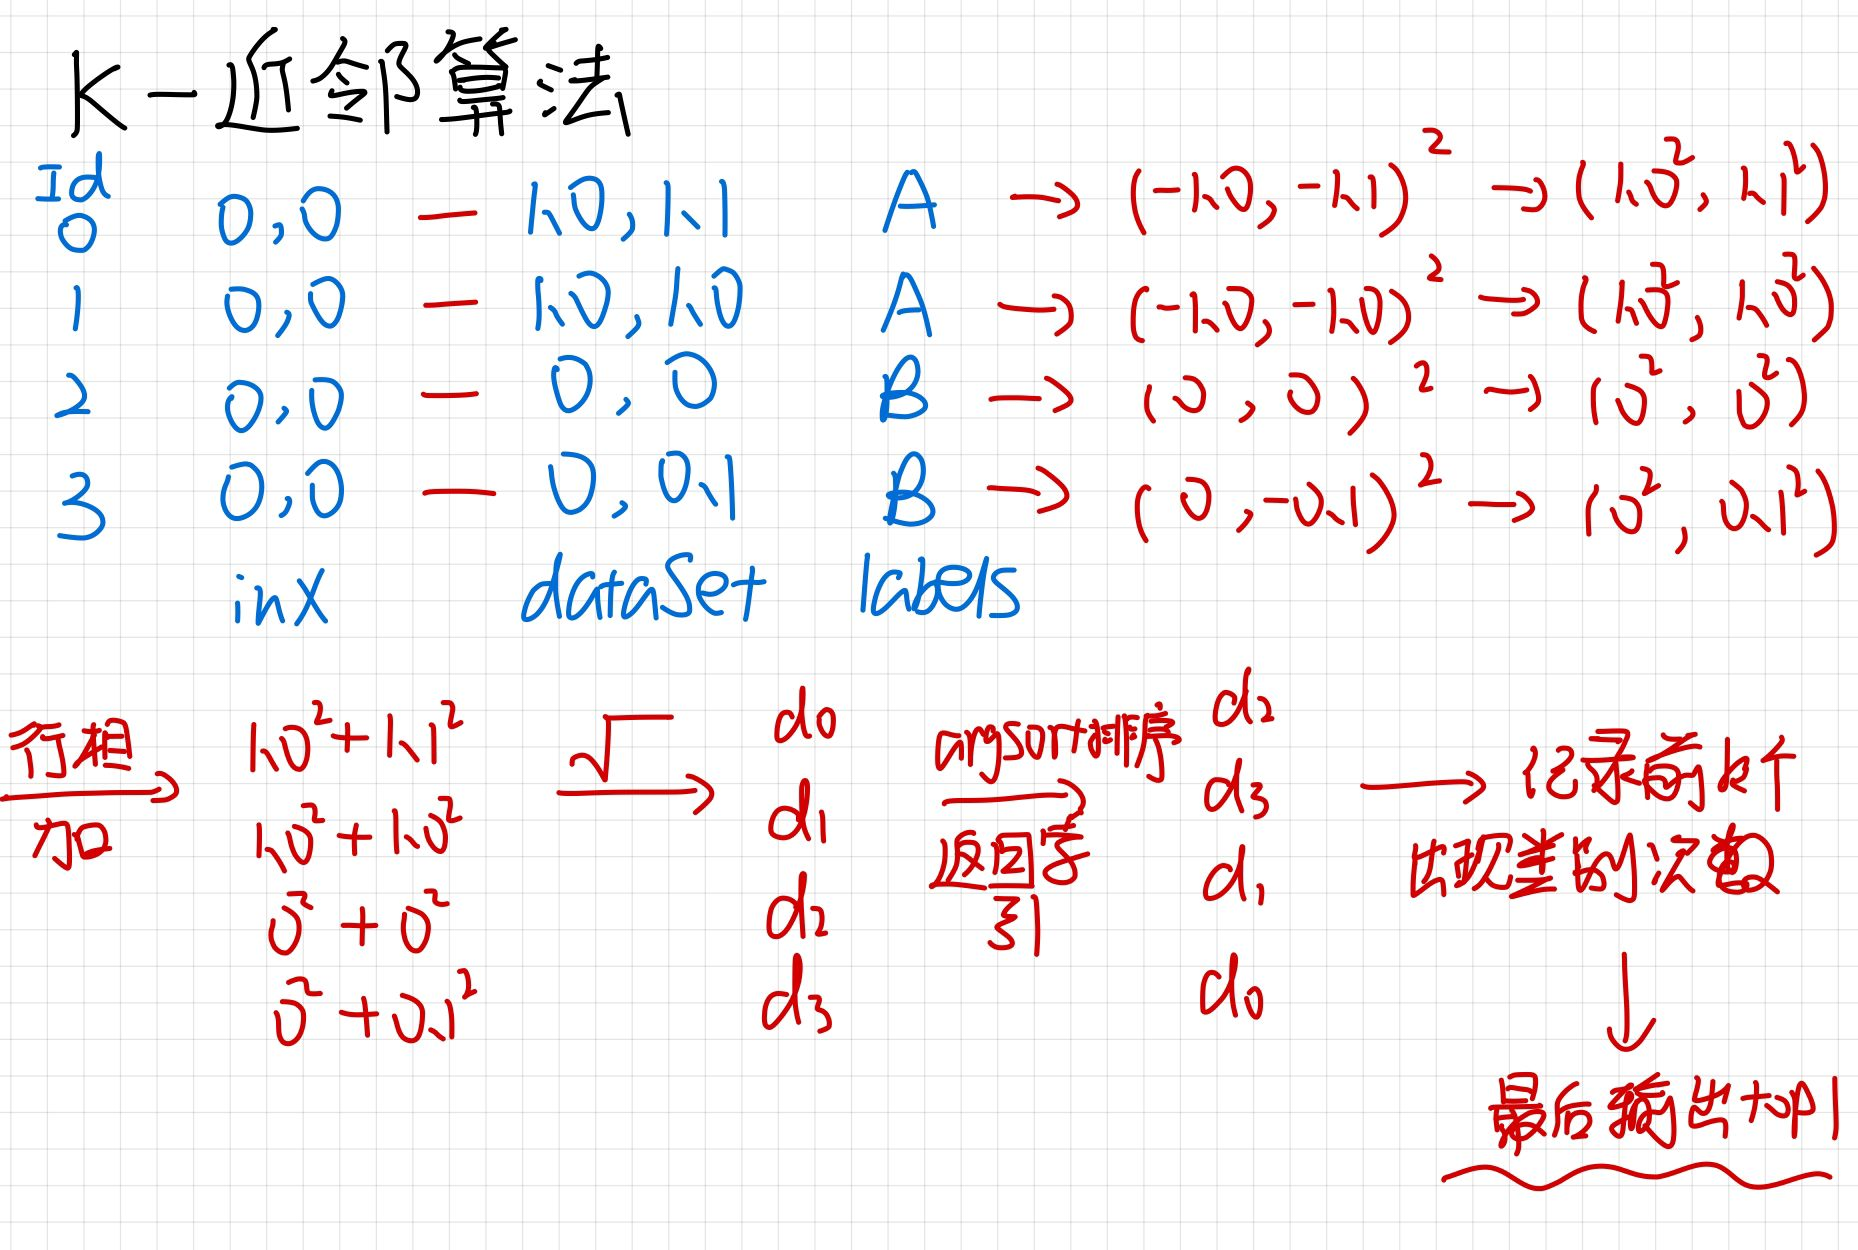 K-近邻算法
Id
0 0,0 — 1.0, 1.1 A → (-1.0, -1.1)² → (1.0², 1.1²)
1 0,0 — 1.0, 1.0 A → (-1.0, -1.0)² → (1.0², 1.0²)
2 0,0 — 0, 0 B → (0, 0)² → (0², 0²)
3 0,0 — 0, 0.1 B → (0, -0.1)² → (0², 0.1²)
inX dataSet labels
行相加 →
1.0² + 1.1²
1.0² + 1.0²
0² + 0²
0² + 0.1²
√ →
d₀
d₁
d₂
d₃
argsort排序 →
返回索
引
d₂
d₃
d₁
d₀
→ 记录前k个
出现类的次数
↓
最后输出top1